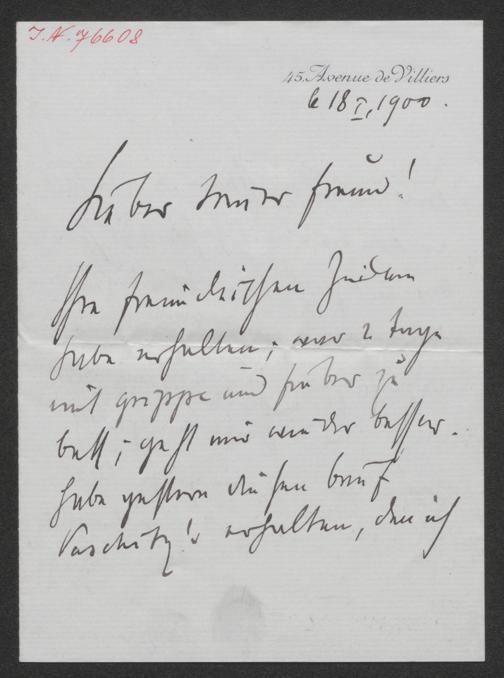 J.N. 76608
45. Avenue de Villiers
le 18 I, 1900.
Lieber teurer Freund!
Ihre freundlichen Zeilen
habe erhalten; war 2 Tage
mit grippe und fieber zu
bett; geht mir wieder besser.
habe gestern diesen brief
erhalten, den ich